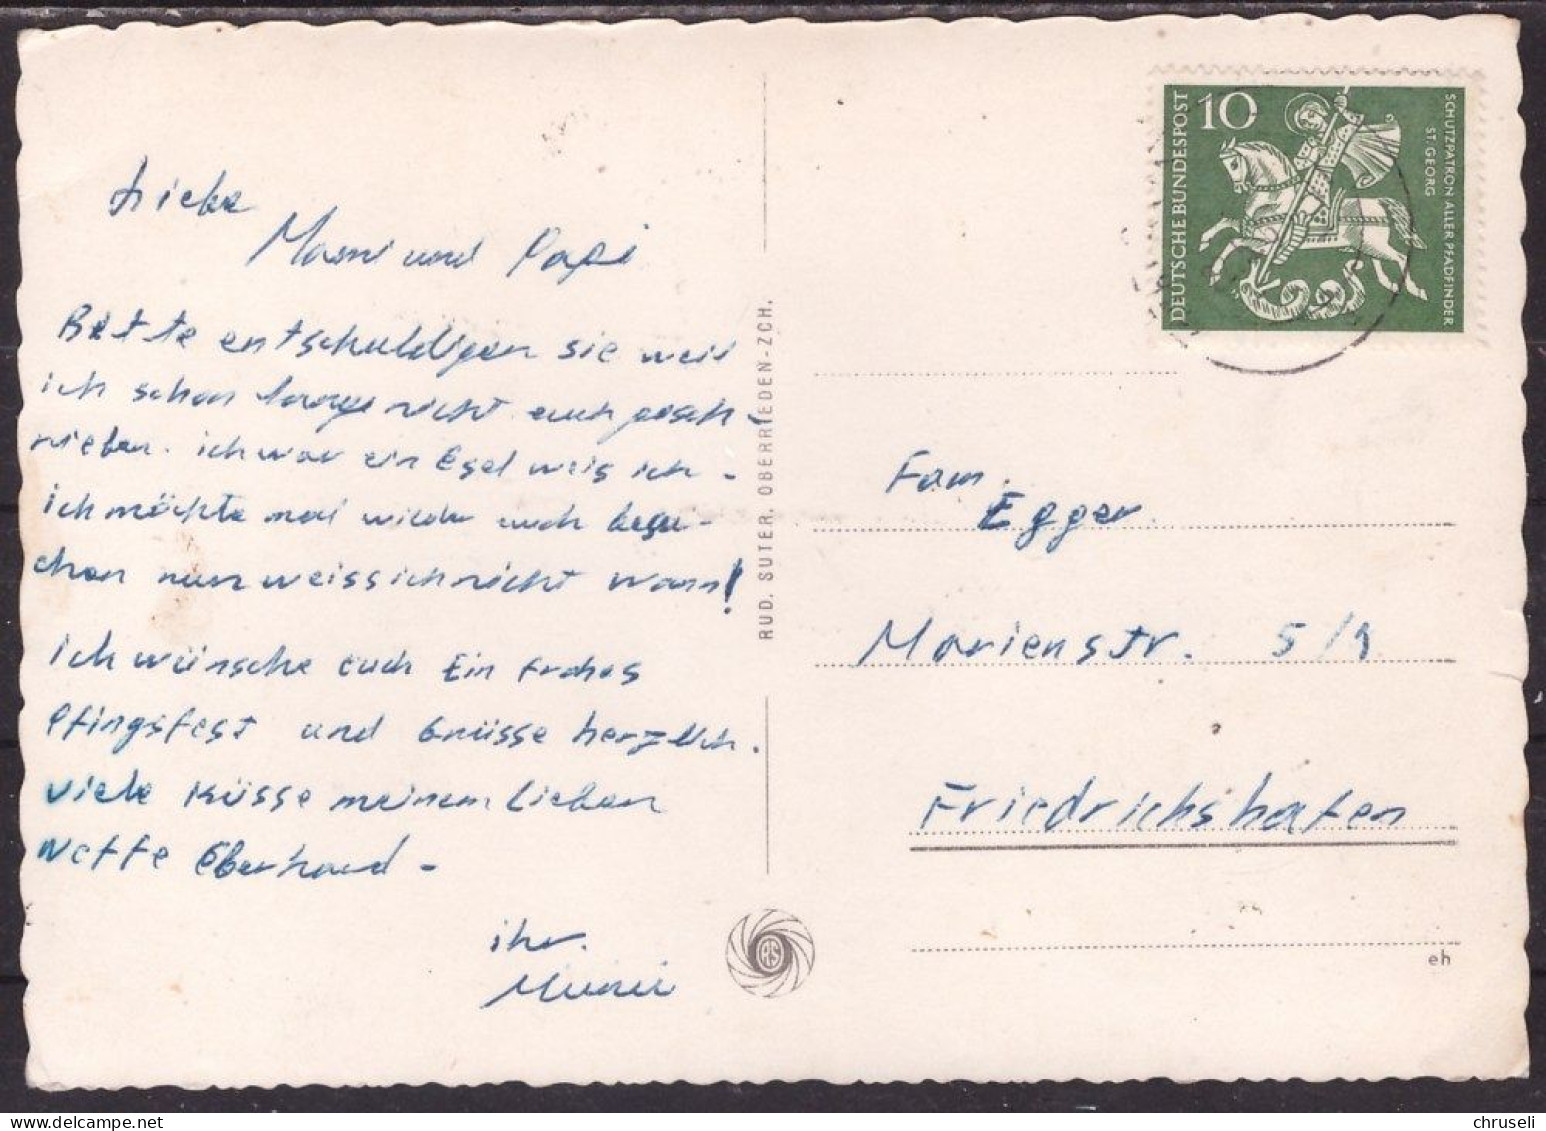 Liebe
Mami und Papi
Bitte entschuldigen sie weil
ich schon lange nicht euch gesch-
rieben. ich war ein Esel weis ich -
ich möchte mal wieder euch besu-
chen nur weiss ich nicht wann!
Ich wünsche Euch Ein Frohes
Pfingsfest und Grüsse herzlich.
viele Küsse meinem Lieben
Neffe Eberhard -
ihr.
RUD. SUTER, OBERRIEDEN-ZCH.
RS
10
DEUTSCHE BUNDESPOST
SCHUTZPATRON ALLER PFADFINDER
ST. GEORG
Fam.
Egger
Marienstr. 5/1
Friedrichshafen
eh
chruseli